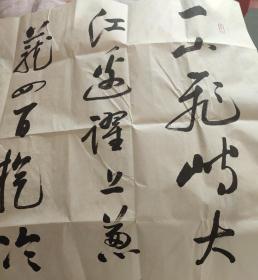 一山飛峙大
江邊躍上葱
蘢四百旋冷